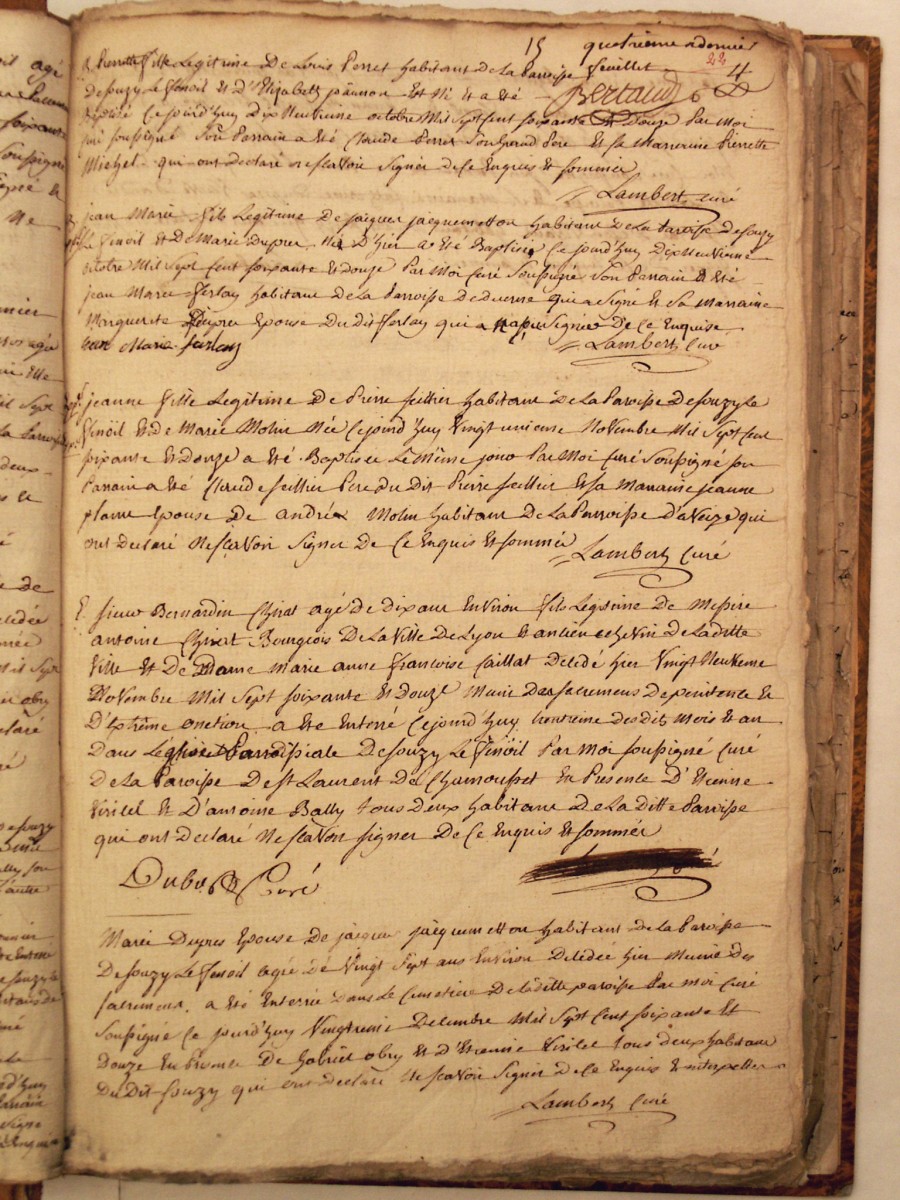 15 quatrieme a dernier
B. Pierrette fille Legitime De Louis Perret habitant de La Paroisse feuillet 22
De souzy Le Fenoil et d'Elizabeth Et a été Bertaud
Ce jourd'huy Dix Neuvieme octobre Mil Sept Cent soixante et Douze Par Moi
soussigné Son Parrain a été Claude Perret Son Grand Pere et sa Marraine Pierrette
Michel qui ont declaré ne sçavoir signer de ce Enquis et sommés
Lambert curé
jean Marie fils Legitime De jacques jacquemetton habitant De La Paroisse De souzy
Le Fenoil et De Marie Dupres Né D'hier a été Baptisé Ce jourd'huy Dix Neuvieme
octobre Mil Sept Cent soixante et Douze Par Moi Curé Soussigné son Parrain a été
jean Marie ferlay habitant de La Parroisse De qui a Signé et Sa Marraine
Marguerite Dupres Epouse Du dit ferlay qui a Signer De Ce Enquise
jean Marie ferlay Lambert Curé
jeanne fille Legitime De Pierre feillier habitant De La Paroisse De souzy Le
Fenoil et De Marie Molin Née Cejourd'huy Vingt unieme Novembre Mil Sept Cent
soixante et Douze a été Baptisée Le Même jour Par Moi Curé Soussigné son
Parrain a été Claude feillier Pere du Dit Pierre feillier et sa Marraine jeanne
Epouse De andré Molin habitant De La Parroisse D'aveize qui
ont Declaré Ne scavoir Signer De Ce Enquis et sommés Lambert Curé
E. sieur Bernardin Chirat agé De dix ans Environ fils Legitime De Messire
antoine Chirat Bourgeois De La Ville De Lyon et ancien echevin De La ditte
Ville et De Dame Marie anne françoise Caillat Décédé hier Vingt Neuvieme
Novembre Mil Sept soixante et Douze Muni Des sacremens De penitence et
D'Extrême onction a été Enterré Ce jourd'huy trentieme des dits Mois et an
Dans L'église Parroissiale De souzy Le Fenoil Par Moi soussigné Curé
De La Paroisse De St Laurent De Chamousset En Presence D'Etienne
Viritel et D'antoine Bally tous Deux habitans De La Ditte Parroisse
qui ont Declaré Ne scavoir signer De Ce Enquis et sommés
Curé
Marie Dupres Epouse De jacques jacquemetton habitant De La Paroisse
De souzy Le Fenoil agée De Vingt Sept ans Environ Décédée hier Munie Des
sacremens a été Enterrée Dans Le Cimetiere De La ditte paroisse Par Moi Curé
Soussigné Ce jourd'huy Decembre Mil Sept Cent soixante et
Douze En Presence De Gabriel obry et D'Etienne Viritel tous Deux habitans
Du Dit souzy qui ont Declaré Ne scavoir Signer De Ce Enquis et interpellés
Lambert Curé